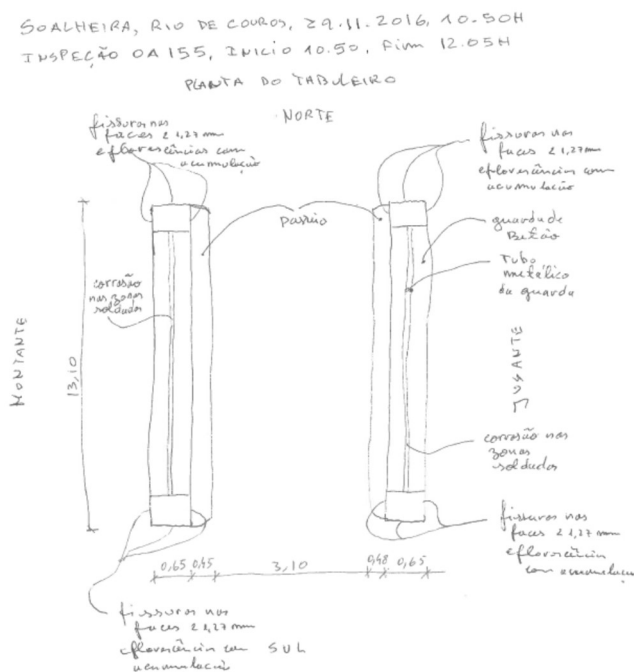 SOALHEIRA, RIO DE COUROS, 29.11.2016, 10.50H
INSPEÇÃO OA 155, INICIO 10.50, Fim 12.05H
PLANTA DO TABULEIRO
NORTE
fissuras nas
faces ≥ 1,27 mm
eflorescências com
acumulação
fissuras nas
faces ≥ 1,27 mm
eflorescências com
acumulação
passeio
guarda de
Betão
Tubo
metálico
da guarda
corrosão
nas zonas
soldadas
MONTANTE
13,10
JUSANTE
corrosão nas
zonas
soldadas
fissuras nas
faces ≥ 1,27 mm
eflorescência
com acumulação
0,65 0,45 3,10 0,48 0,65
fissuras nas
faces ≥ 1,27 mm
eflorescência com
acumulação
SUL